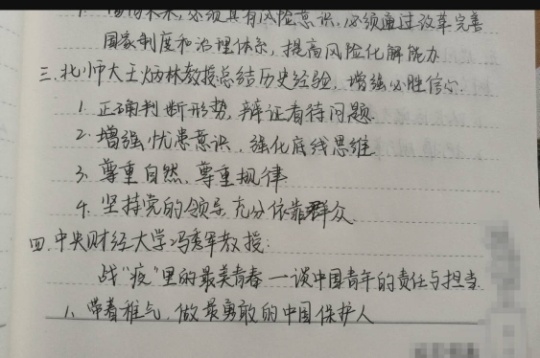 1. 面向未来,必须具有风险意识,必须通过改革完善
国家制度和治理体系,提高风险化解能力
三.北师大王炳林教授总结历史经验,增强必胜信心.
1. 正确判断形势,辩证看待问题.
2. 增强忧患意识,强化底线思维
3. 尊重自然,尊重规律
4. 坚持党的领导,充分依靠群众.
四.中央财经大学冯秀军教授:
战“疫”里的最美青春—谈中国青年的责任与担当.
1、带着稚气,做最勇敢的中国保护人